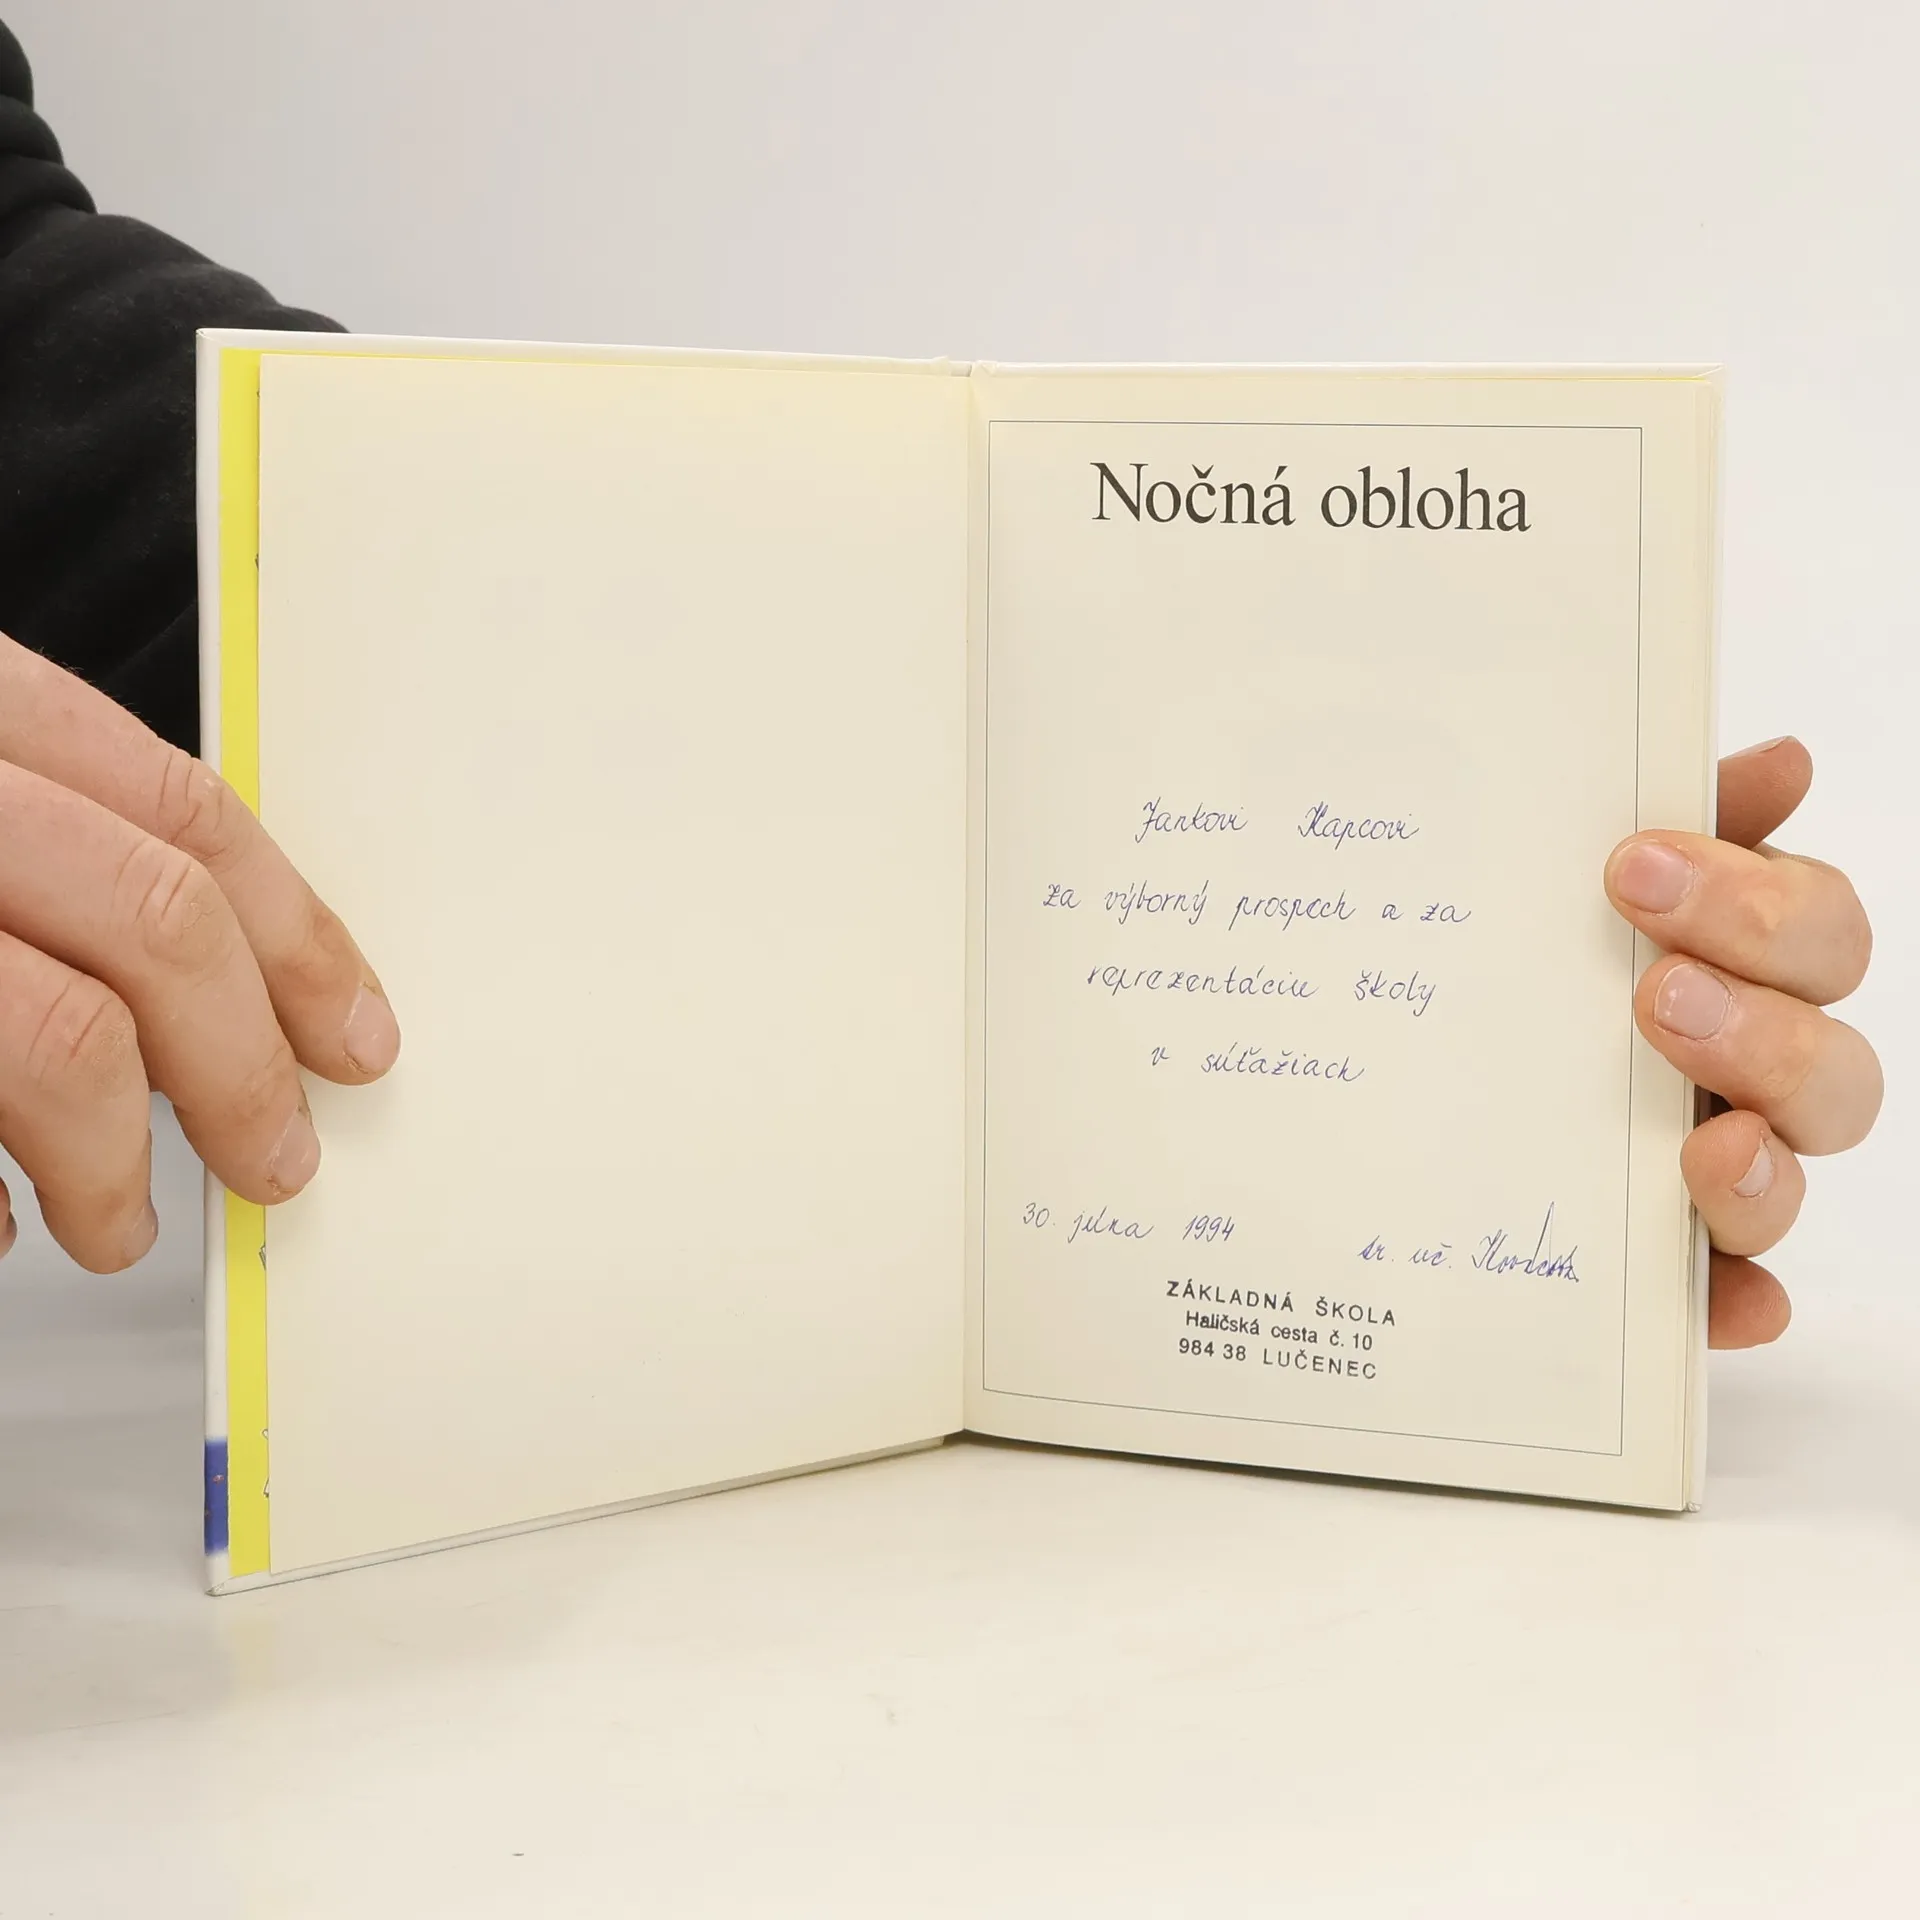 Nočná obloha
Jankovi Kapcovi
za výborný prospech a za
reprezentáciu školy
v súťažiach
30. júna 1994
tr. uč.
ZÁKLADNÁ ŠKOLA
Haličská cesta č. 10
984 38 LUČENEC